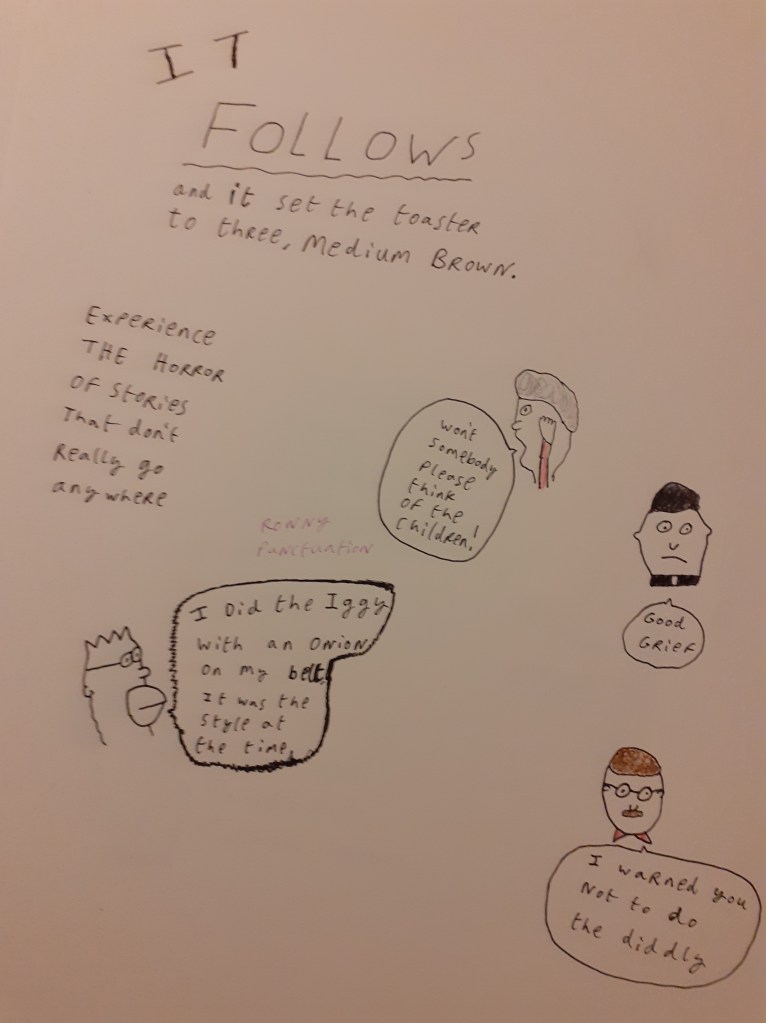 IT
FOLLOWS
and it set the toaster
to three, Medium Brown.
Experience
THE HORROR
OF STORIES
That don't
Really go
anywhere
won't
somebody
please
think
of the
children!
RONNY
PUNCTUATION
Good
GRIEF
I Did the Iggy
with an onion
on my belt.
It was the
style at
the time.
I waRned you
Not to do
the diddly